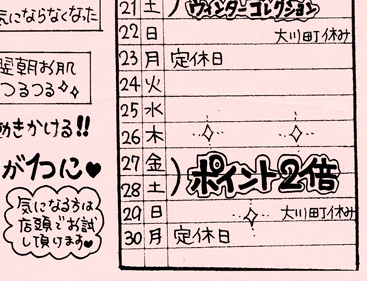 気にならなくなった
翌朝お肌
つるつる
働きかける!!
が1つに♥
気になる方は
店頭でお試
して頂けます♥
21 土 ) ウィンターコレクション
22 日 大川町休み
23 月 定休日
24 火
25 水
26 木
27 金
28 土 ) ポイント2倍
29 日 大川町休み
30 月 定休日